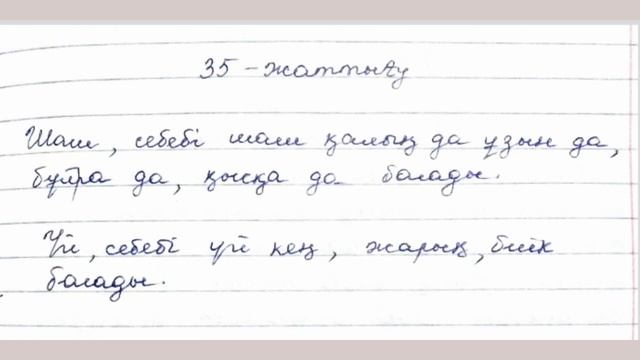 35 - жаттығу
Шаш, себебі шаш қалың да ұзын да,
бұйра да, қысқа да болады.
Үй, себебі үй кең, жарық, биік
болады.